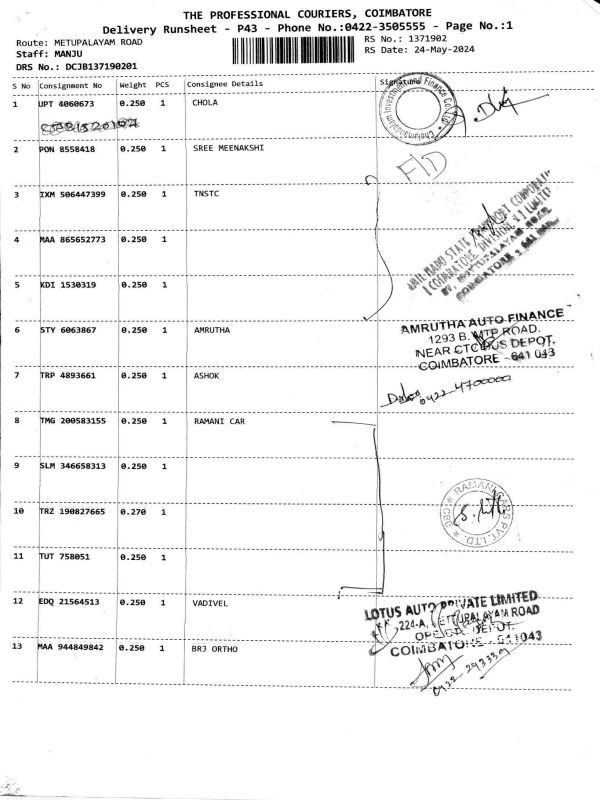 THE PROFESSIONAL COURIERS, COIMBATORE
Delivery Runsheet - P43 - Phone No.:0422-3505555 - Page No.:1
Route: METUPALAYAM ROAD
RS No.: 1371902
Staff: MANJU
RS Date: 24-May-2024
DRS No.: DCJB137190201
S No Consignment No Weight PCS Consignee Details Signature
1 UPT 4060673 0.250 1 CHOLA
2 PON 8558418 0.250 1 SREE MEENAKSHI
F/D
3 IXM 506447399 0.250 1 TNSTC
4 MAA 865652773 0.250 1
5 KDI 1530319 0.250 1
6 STY 6063867 0.250 1 AMRUTHA
AMRUTHA AUTO FINANCE
1293 B. MTP ROAD.
NEAR CTC BUS DEPOT.
COIMBATORE - 641 043
7 TRP 4893661 0.250 1 ASHOK
0422 4700000
8 TMG 200583155 0.250 1 RAMANI CAR
9 SLM 346658313 0.250 1
10 TRZ 190827665 0.270 1
RAMANI CARS PVT. LTD.
CBE
11 TUT 758051 0.250 1
12 EDQ 21564513 0.250 1 VADIVEL
LOTUS AUTO PRIVATE LIMITED
224-A, METTUPALAYAM ROAD
DEPOT.
COIMBATORE - 641043
13 MAA 944849842 0.250 1 BRJ ORTHO
0422-293339